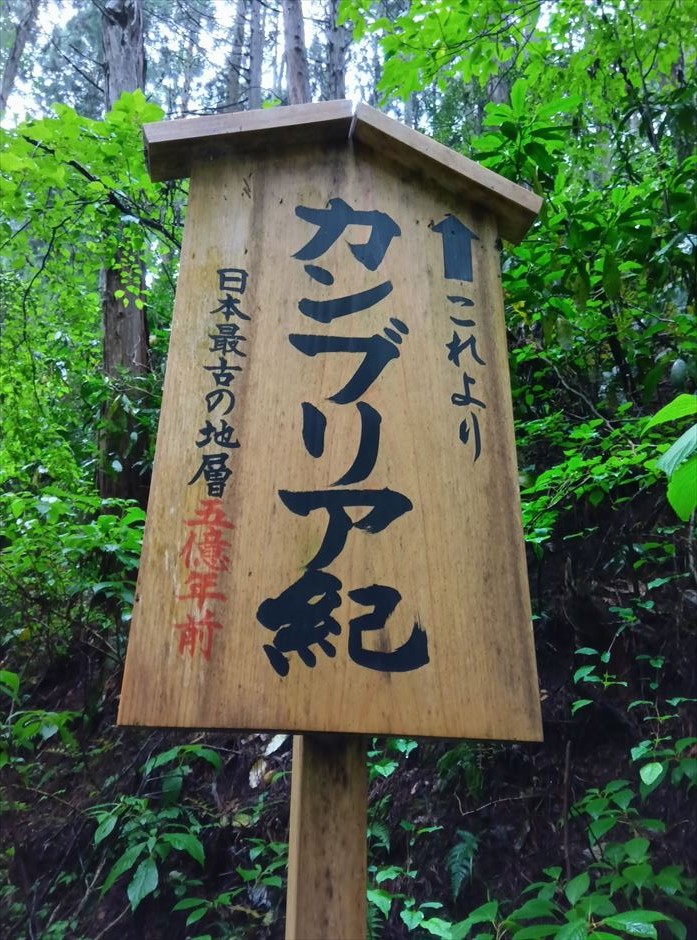 ↑これより
カンブリア紀
日本最古の地層五億年前